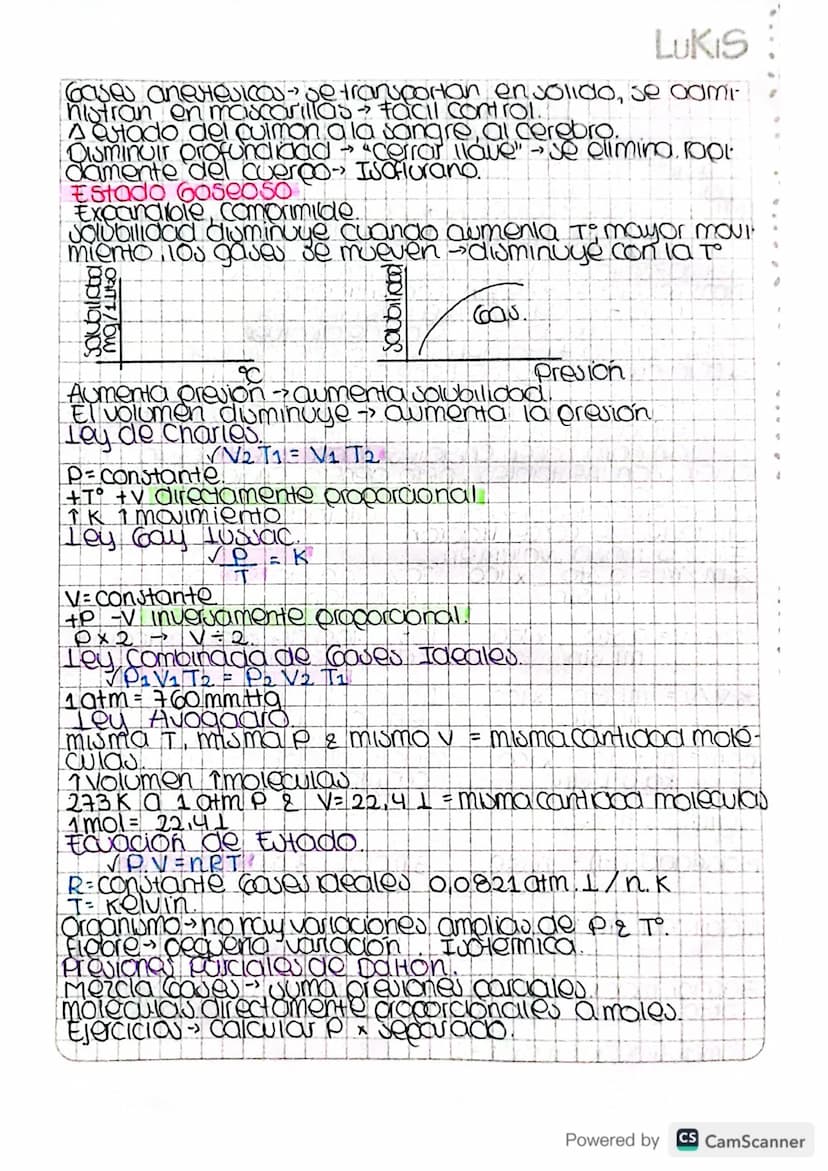 LUKIS
Gases anestésicos → se transportan en solido, se admi-
nistran en mascarillas → fácil control.
Δ estado del pulmon a la sangre, al cerebro.
Disminuir profundidad → "cerrar llave" → se elimina rapi-
damente del cuerpo → Isoflurano.
Estado Gaseoso
Expandible, comprimible.
Solubilidad disminuye cuando aumenta T°, mayor movi-
miento, los gases se mueven → disminuye con la T°
Solubilidad
mg/Litro
°C
Solubilidad
Gas.
Presión
Aumenta presión → aumenta solubilidad.
El volumen disminuye → aumenta la presión
Ley de Charles.
√ V2 T1 = V1 T2
P = constante.
+T° +V directamente proporcional
↑K ↑movimiento
Ley Gay Lussac.
√ P/T = K
V = constante
+P -V inversamente proporcional.
P x 2 → V ÷ 2.
Ley Combinada de Gases Ideales.
√ P1 V1 T2 = P2 V2 T1
1 atm = 760 mmHg
Ley Avogadro.
misma T, misma P & mismo V = misma cantidad molé-
culas.
↑Volumen ↑moleculas
273 K a 1 atm P & V = 22,4 L = misma cantidad moleculas
1 mol = 22,4 L
Ecuación de Estado.
√ P.V = nRT
R = constante Gases ideales 0,0821 atm.L/n.K
T = Kelvin.
Organismo → no hay variaciones amplias de P & T°.
Fiebre → pequeña variación Isotermica.
Presiones parciales de Dalton.
Mezcla Gases → suma presiones parciales.
moleculas directamente proporcionales a moles.
Ejercicios → calcular P x separado.
Powered by CS CamScanner